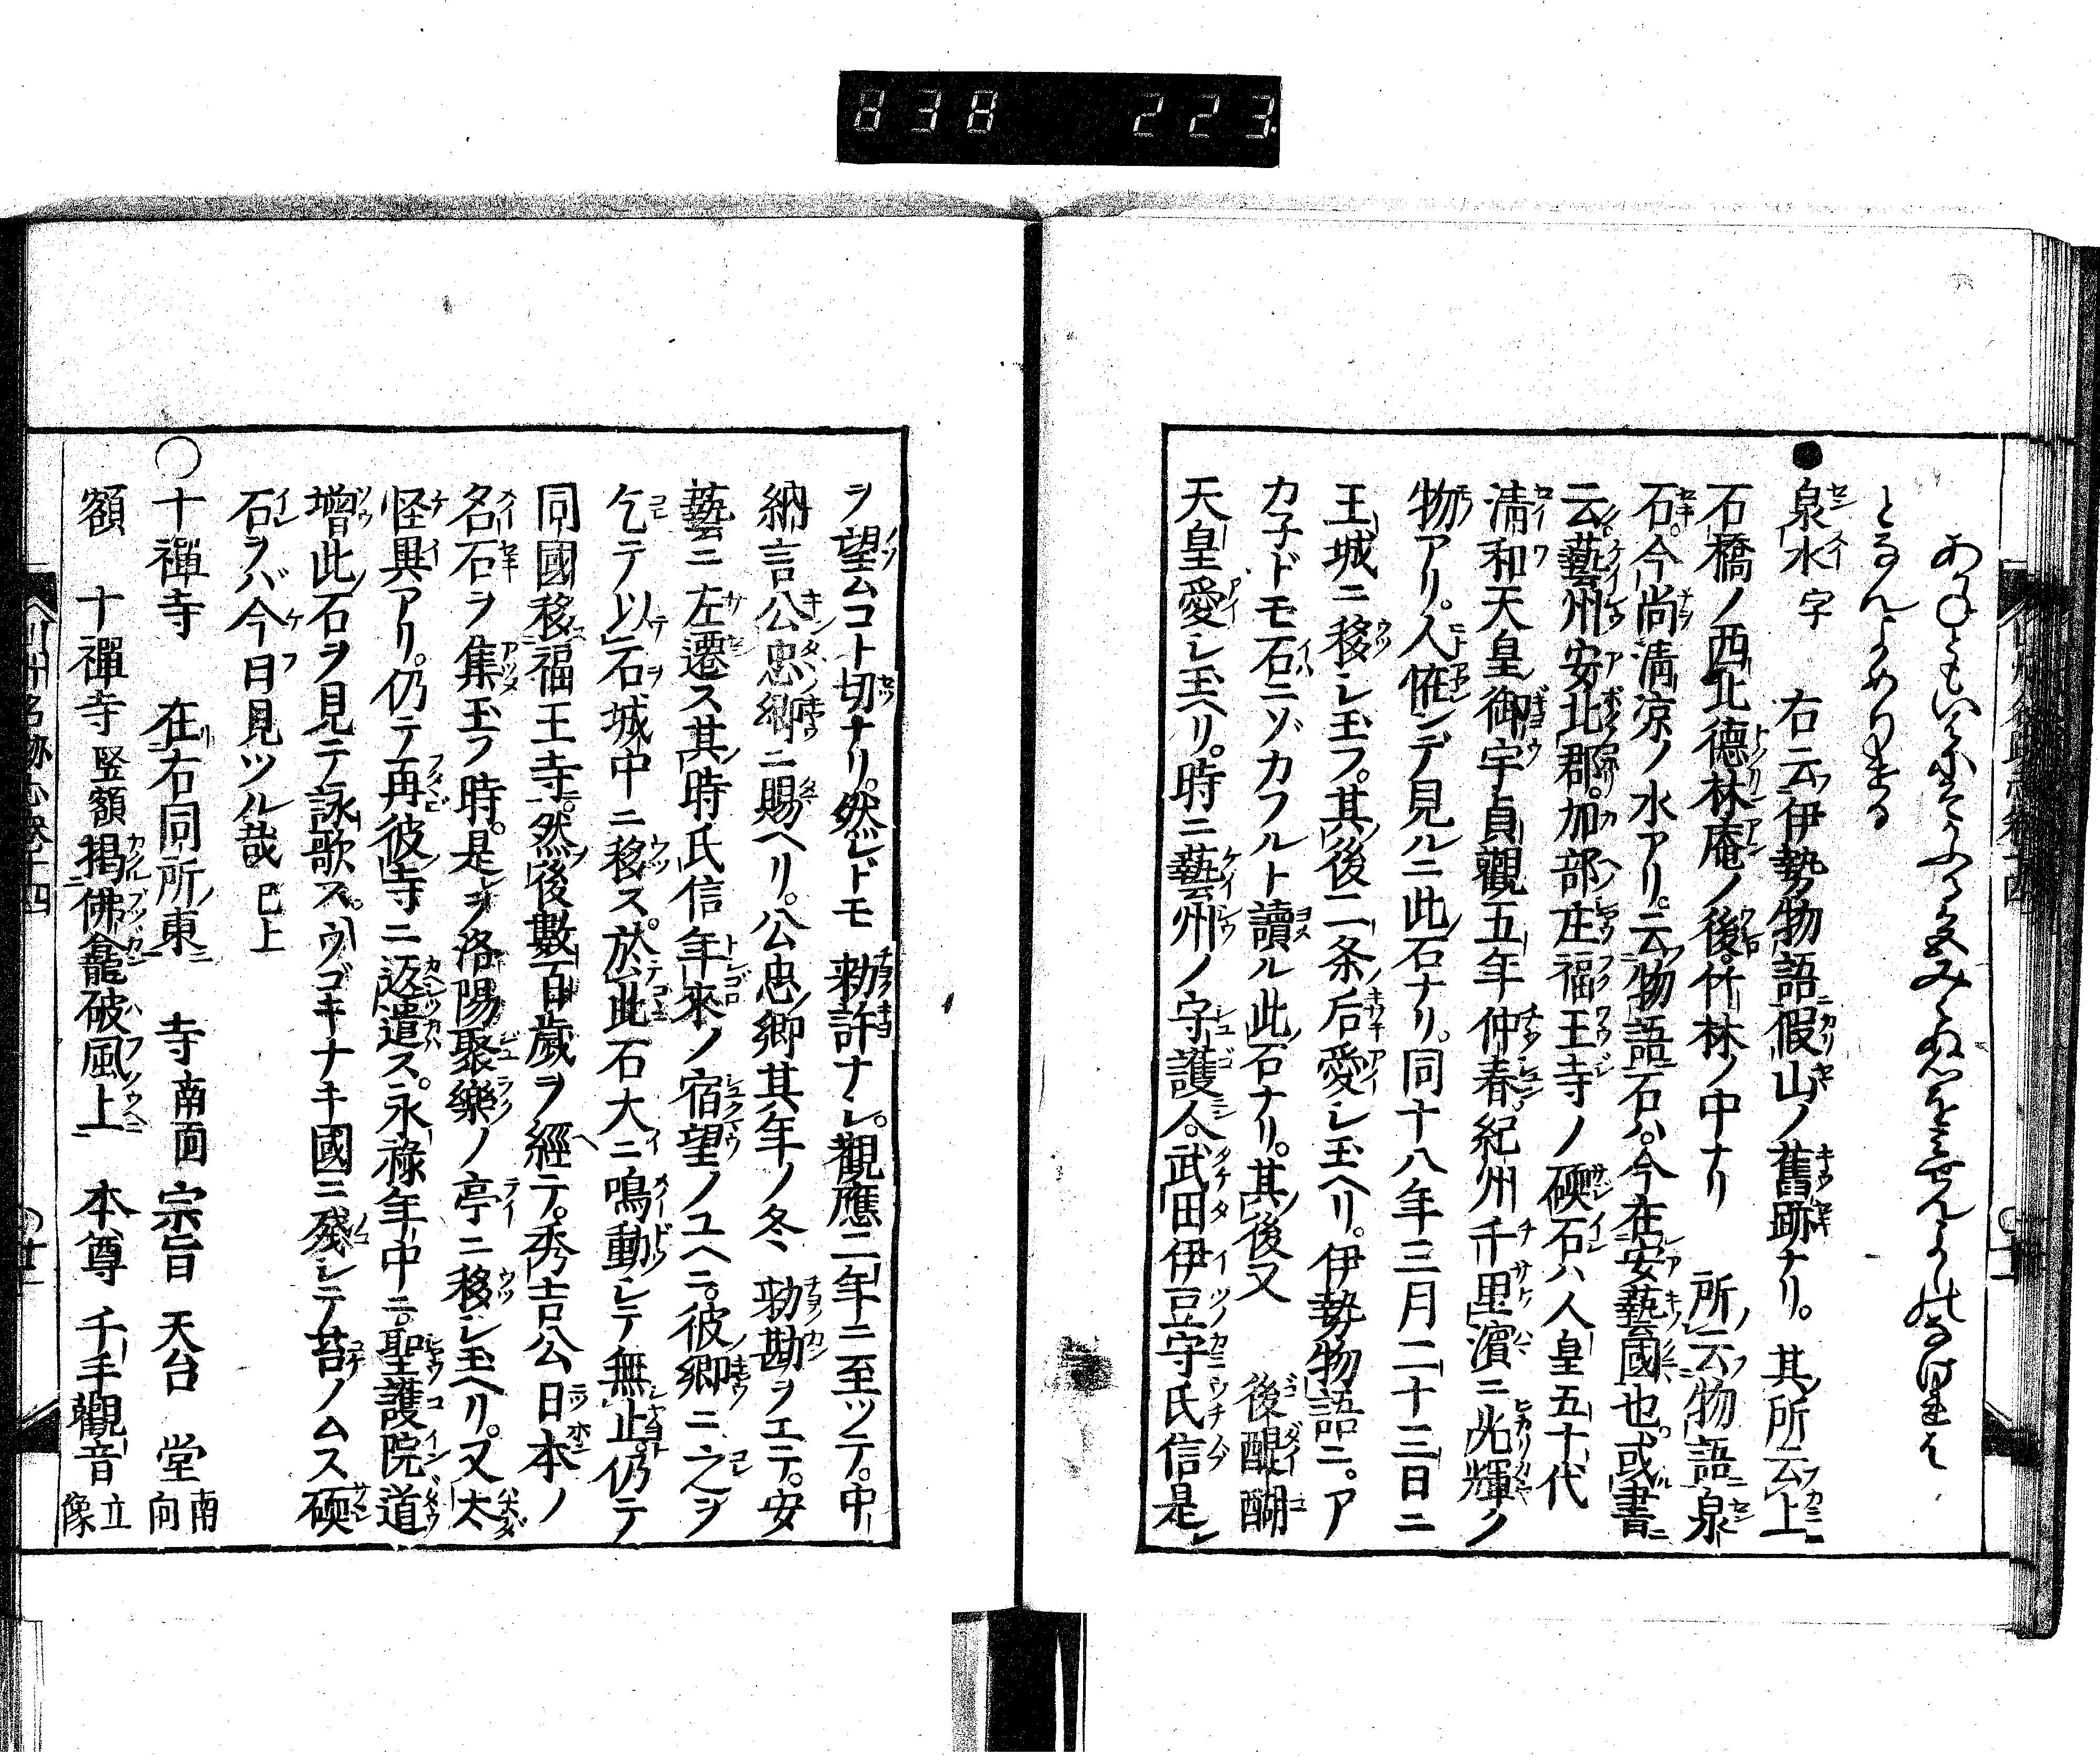 838 223
あかねともいはにそかふる色みえぬ心をみせんよしのなけれは
となんよめりける
●泉水字 右云伊勢物語假山ノ舊跡ナリ。其所云上
石橋ノ西北德林庵ノ後。竹林ノ中ナリ 所云物語泉
石。今尚清涼ノ水アリ。云物語石ハ。今在安藝國也。或書
云。藝州安北郡。加部庄福王寺ノ礀石ハ人皇五十代
清和天皇御宇貞觀五年仲春。紀州千里濱ニ光輝ク
物アリ。人恠ンデ見ルニ此石ナリ。同十八年三月二十三日ニ
王城ニ移シ玉フ。其後二条后愛シ玉ヘリ。伊勢物語ニ。ア
カ子ドモ石ニゾカフルト讀ル此石ナリ。其後又 後醍醐
天皇愛シ玉ヘリ。時ニ藝州ノ守護人。武田伊豆守氏信是
ヲ望ムコト切ナリ。然レドモ 勅許ナシ。觀應二年ニ至ツテ。中
納言公忠卿ニ賜ヘリ。公忠卿其年ノ冬 勅勘ヲエテ。安
藝ニ左遷ス其時氏信年來ノ宿望ノユヘニ。彼卿ニ之ヲ
乞テ以石城中ニ移ス。於此石大ニ鳴動シテ無止。仍テ
同國移福王寺。然後數百歲ヲ經テ。秀吉公日本ノ
名石ヲ集玉フ時。是ヲ洛陽聚樂ノ亭ニ移シ玉ヘリ。又太
怪異アリ。仍テ再彼寺ニ返遣ス。永祿年中ニ。聖護院道
增此石ヲ見テ詠歌ス。ウゴキナキ國ニ殘シテ苔ノムス礀
石ヲバ今日見ツル哉 已上
○十禪寺 在右同所東 寺南面 宗旨 天台 堂南向
額 十禪寺 竪額 揭佛龕破風上 本尊 千手觀音立像
州名跡志卷十四